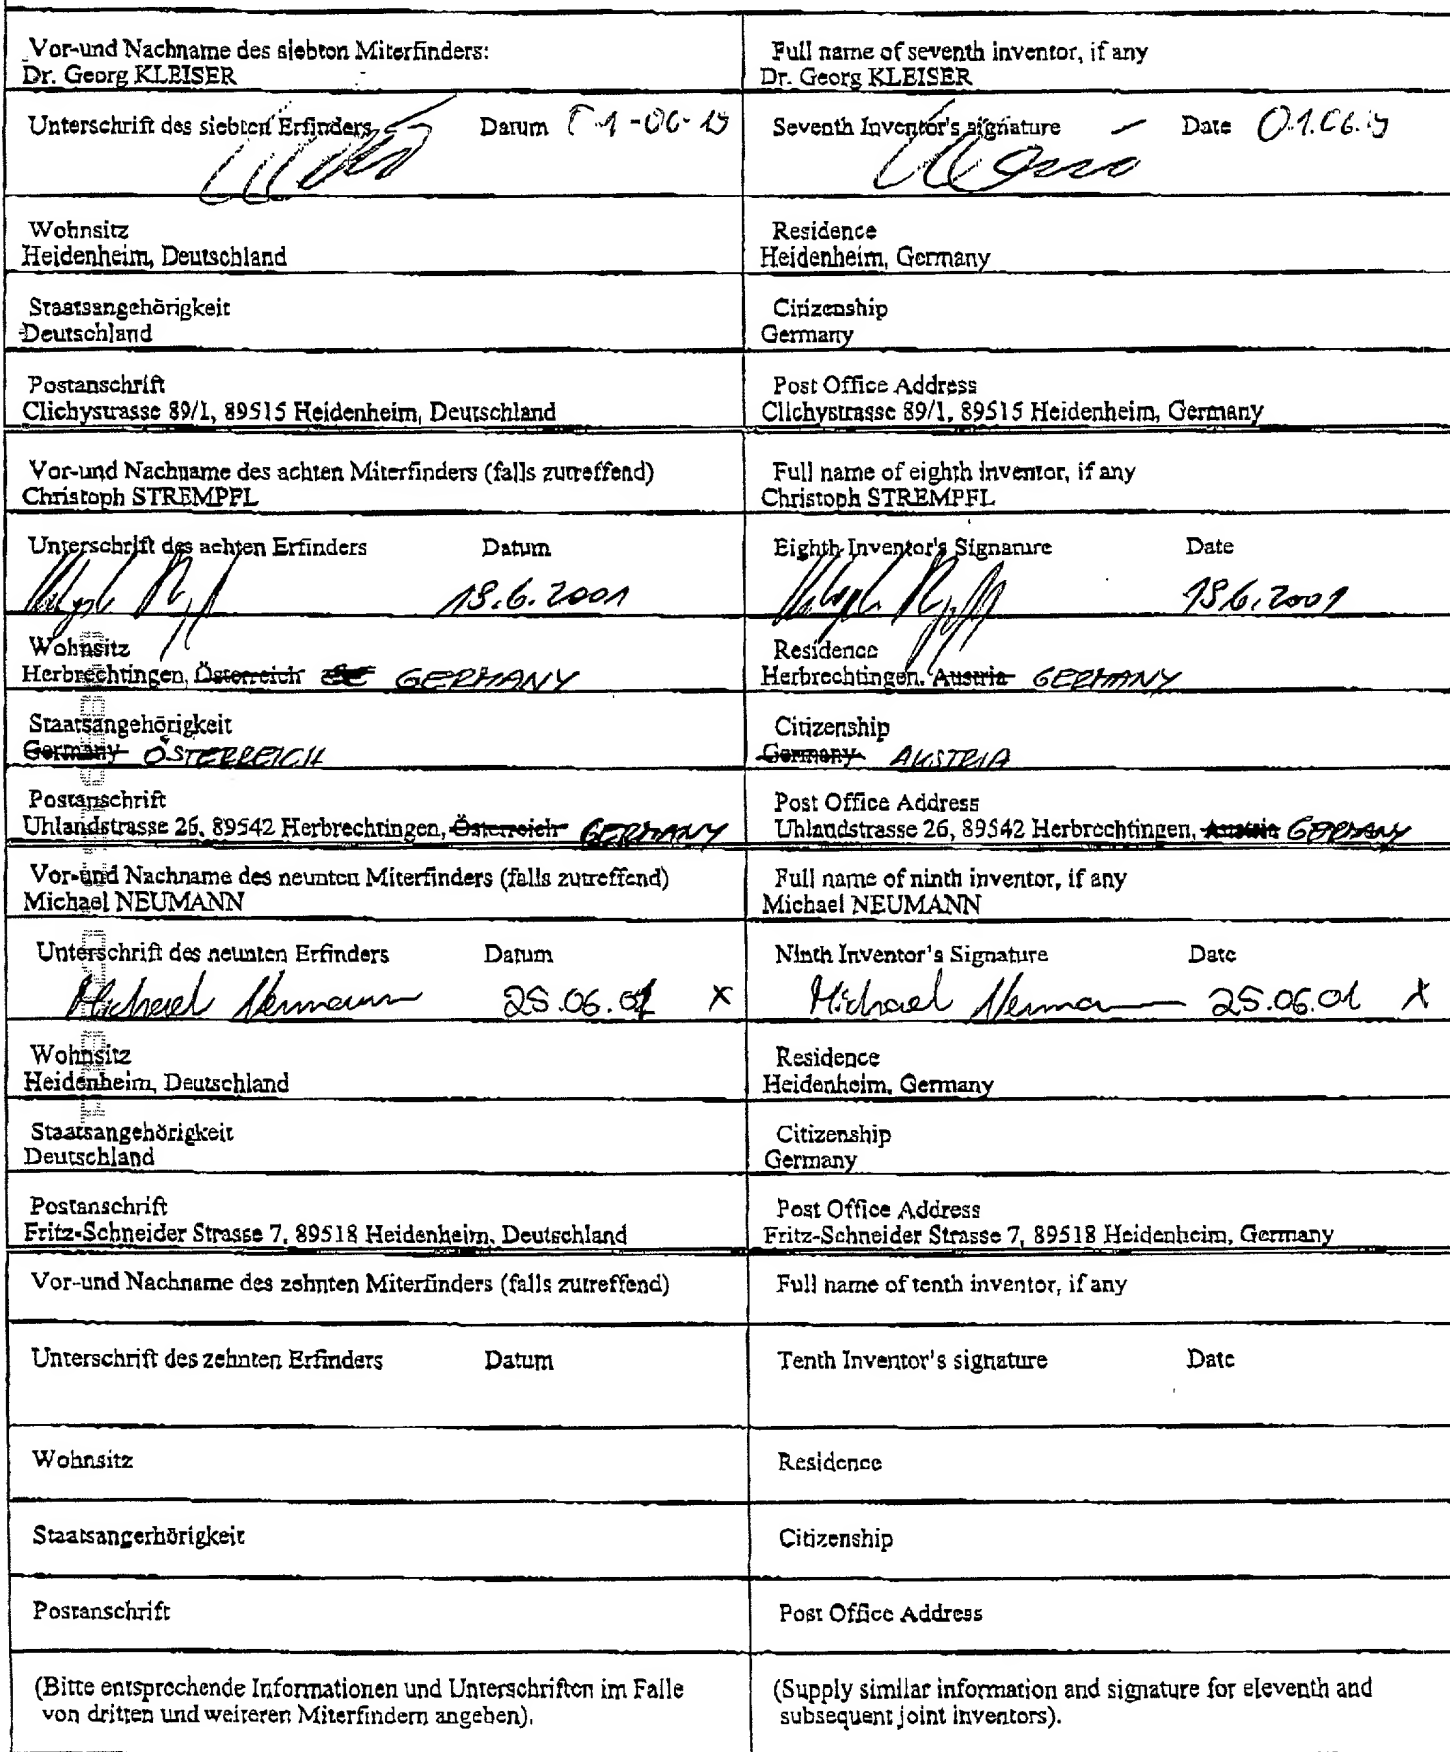 Vor-und Nachname des siebten Miterfinders:
Dr. Georg KLEISER
Full name of seventh inventor, if any
Dr. Georg KLEISER
Unterschrift des siebten Erfinders Datum
Seventh Inventor's signature Date
Wohnsitz
Heidenheim, Deutschland
Residence
Heidenheim, Germany
Staatsangehörigkeit
Deutschland
Citizenship
Germany
Postanschrift
Clichystrasse 89/1, 89515 Heidenheim, Deutschland
Post Office Address
Clichystrasse 89/1, 89515 Heidenheim, Germany
Vor-und Nachname des achten Miterfinders (falls zutreffend)
Christoph STREMPFL
Full name of eighth inventor, if any
Christoph STREMPFL
Unterschrift des achten Erfinders Datum
Eighth Inventor's Signature Date
Wohnsitz
Herbrechtingen, Österreich GERMANY
Residence
Herbrechtingen, Austria GERMANY
Staatsangehörigkeit
Germany ÖSTERREICH
Citizenship
Germany AUSTRIA
Postanschrift
Uhlandstrasse 26, 89542 Herbrechtingen, Österreich GERMANY
Post Office Address
Uhlandstrasse 26, 89542 Herbrechtingen, Austria GERMANY
Vor-und Nachname des neunten Miterfinders (falls zutreffend)
Michael NEUMANN
Full name of ninth inventor, if any
Michael NEUMANN
Unterschrift des neunten Erfinders Datum
Michael Neumann 25.06.01 X
Ninth Inventor's Signature Date
Michael Neumann 25.06.01 X
Wohnsitz
Heidenheim, Deutschland
Residence
Heidenheim, Germany
Staatsangehörigkeit
Deutschland
Citizenship
Germany
Postanschrift
Fritz-Schneider Strasse 7, 89518 Heidenheim, Deutschland
Post Office Address
Fritz-Schneider Strasse 7, 89518 Heidenheim, Germany
Vor-und Nachname des zehnten Miterfinders (falls zutreffend)
Full name of tenth inventor, if any
Unterschrift des zehnten Erfinders Datum
Tenth Inventor's signature Date
Wohnsitz
Residence
Staatsangerhörigkeit
Citizenship
Postanschrift
Post Office Address
(Bitte entsprechende Informationen und Unterschriften im Falle
von dritten und weiteren Miterfindern angeben).
(Supply similar information and signature for eleventh and
subsequent joint inventors).